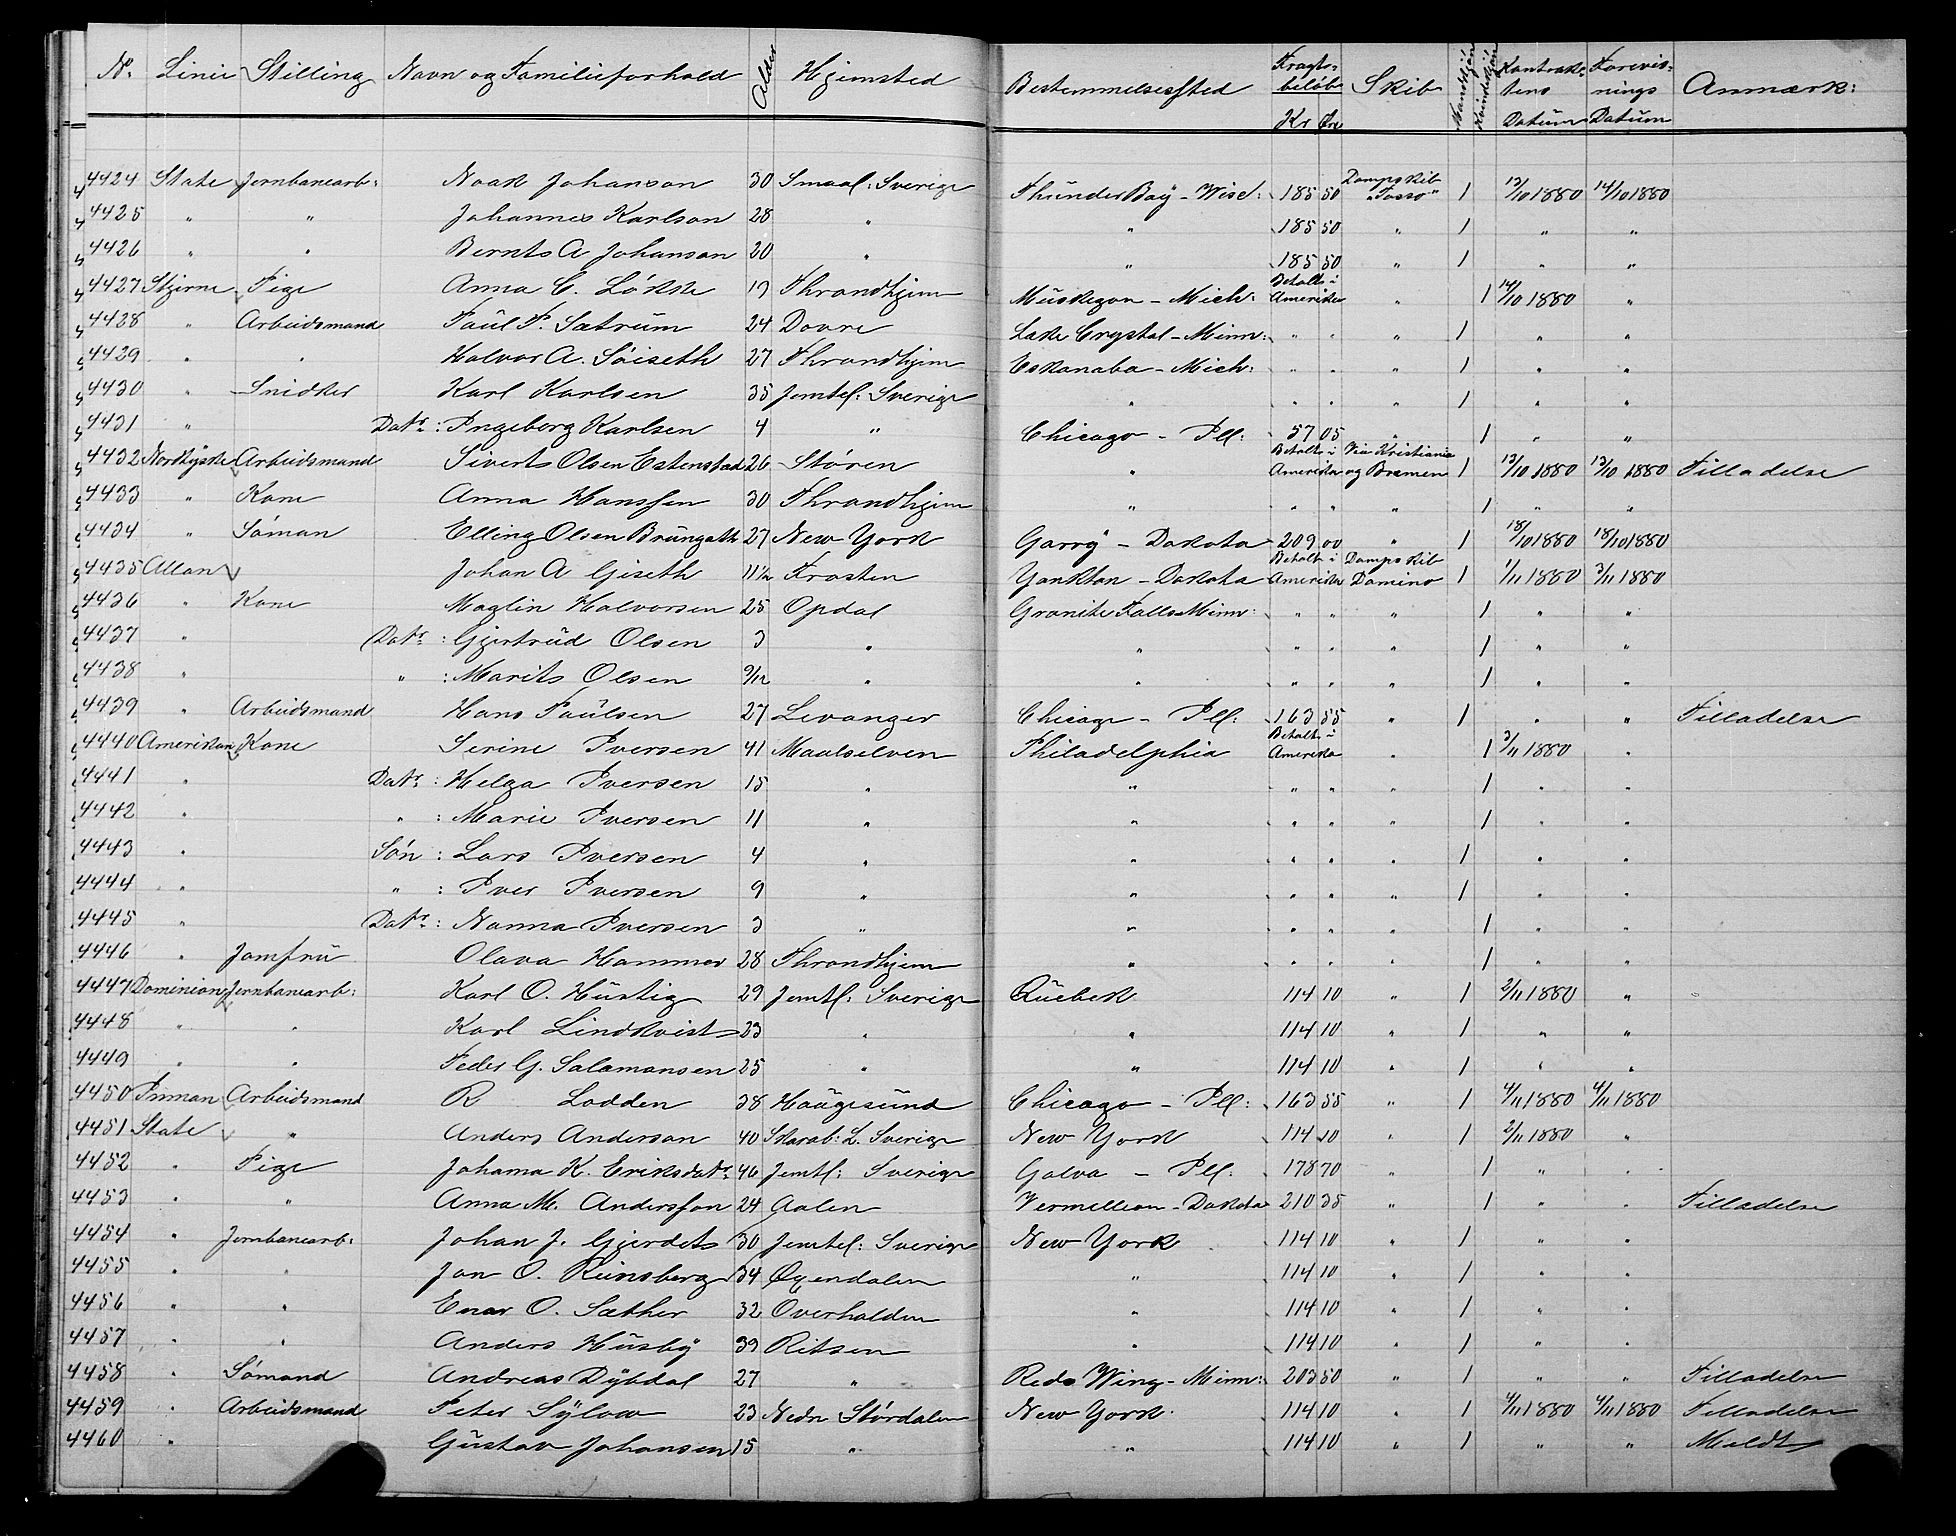 No. Linie Stilling Navn og Familieforhold Alder Hjemsted Bestemmelsessted Fragtbeløb Kr Øre Skib Mandkjøn Kvindekjøn Kontraktens Datum Forevisnings Datum Anmærk:
4424 State Jernbanearb: Noak Johanson 30 Smaal: Sverige Thunder Bay - Wisc: 185 50 Dampskib "Tasso" 1 13/10 1880 14/10 1880
4425 " " Johannes Karlson 28 " " 185 50 " 1 " "
4426 " " Bernts A Johanson 20 " " 185 50 " 1 " "
4427 Stjerne Pige Anna C. Løkke 19 Throndhjem Muskegon - Mich: Betalt i Amerika " 1 14/10 1880 "
4428 " Arbeidsmand Paul P. Sætrum 24 Dovre Lake Crystal - Minn: " " " 1 " "
4429 " " Halvor A. Søiseth 27 Throndhjem Eskanaba - Mich: " " " 1 " "
4430 " Snidker Karl Karlsen 35 Jemtl: Sverige " " " " 1 " "
4431 " Datr: Ingeborg Karlsen 4 " Chicago - Ill: 57 05 " 1 " "
4432 Nordtyske Arbeidsmand Siverts Olsen Estenstad 26 Støren " Betalt i Amerika Via Kristiania og Bremen 1 13/10 1880 13/10 1880 Tilladelse
4433 " Kone Anna Hanssen 30 Throndhjem " " " " 1 " "
4434 " Søman Elling Olsen Brungath 27 New York Garry - Dakota 209 00 " 1 18/10 1880 18/10 1880
4435 Allan Johan A Giseth 11 1/2 Frosten Yankton - Dakota Betalt i Amerika Dampskib Domino 1 1/11 1880 3/11 1880
4436 " Kone Maglin Halvorsen 25 Opdal Granite Falls Minn: " " " 1 " "
4437 " Datr: Gjertrud Olsen 3 " " " " " 1 " "
4438 " " : Marits Olsen 9/12 " " " " " 1 " "
4439 " Arbeidsmand Hans Paulsen 27 Levanger Chicago - Ill: 163 55 " 1 " " Tilladelse
4440 Amerikan Kone Serine Iversen 41 Maalselven Philadelphia Betalt i Amerika " 1 3/11 1880 "
4441 " Datr: Helga Iversen 15 " " " " " 1 " "
4442 " " : Marie Iversen 11 " " " " " 1 " "
4443 " Søn : Lars Iversen 4 " " " " " 1 " "
4444 " " : Iver Iversen 9 " " " " " 1 " "
4445 " Datr: Nanna Iversen 3 " " " " " 1 " "
4446 " Jomfru Olava Hammer 28 Throndhjem " " " " 1 " "
4447 Dominion Jernbanearb: Karl O. Hustig 29 Jemtl: Sverige Quebek 114 10 " 1 2/11 1880 "
4448 " " Karl Lindkvist 23 " " 114 10 " 1 " "
4449 " " Peder G. Salamonsen 25 " " 114 10 " 1 " "
4450 Inman Arbeidsmand R Lodden 38 Haugesund Chicago - Ill: 163 55 " 1 4/11 1880 4/11 1880
4451 State " Anders Anderson 40 Skarab: L. Sverige New York 114 10 " 1 2/11 1880 "
4452 " Pige Johanna K. Eriksdatr 46 Jemtl: Sverige Galva - Ill: 178 70 " 1 " "
4453 " " Anna M. Andersson 24 Aalen Vermillion - Dakota 210 35 " 1 " " Tilladelse
4454 " Jernbanearb: Johan J. Gjerdets 30 Jemtl: Sverige New York 114 10 " 1 " "
4455 " " Jon O. Reinsberg 34 Øxendalen " 114 10 " 1 " "
4456 " " Enar O. Sæther 32 Overhalden " 114 10 " 1 " "
4457 " " Anders Husby 39 Ritsen " 114 10 " 1 " "
4458 " Sømand Andreas Dybdal 27 " Reds Wing - Minn: 203 50 " 1 " " Tilladelse
4459 " Arbeidsmand Peter Sylow 23 Nedre Størdalen New York 114 10 " 1 4/11 1880 4/11 1880 Tilladelse
4460 " Gustav Johansen 15 " " 114 10 " 1 " " Meldt